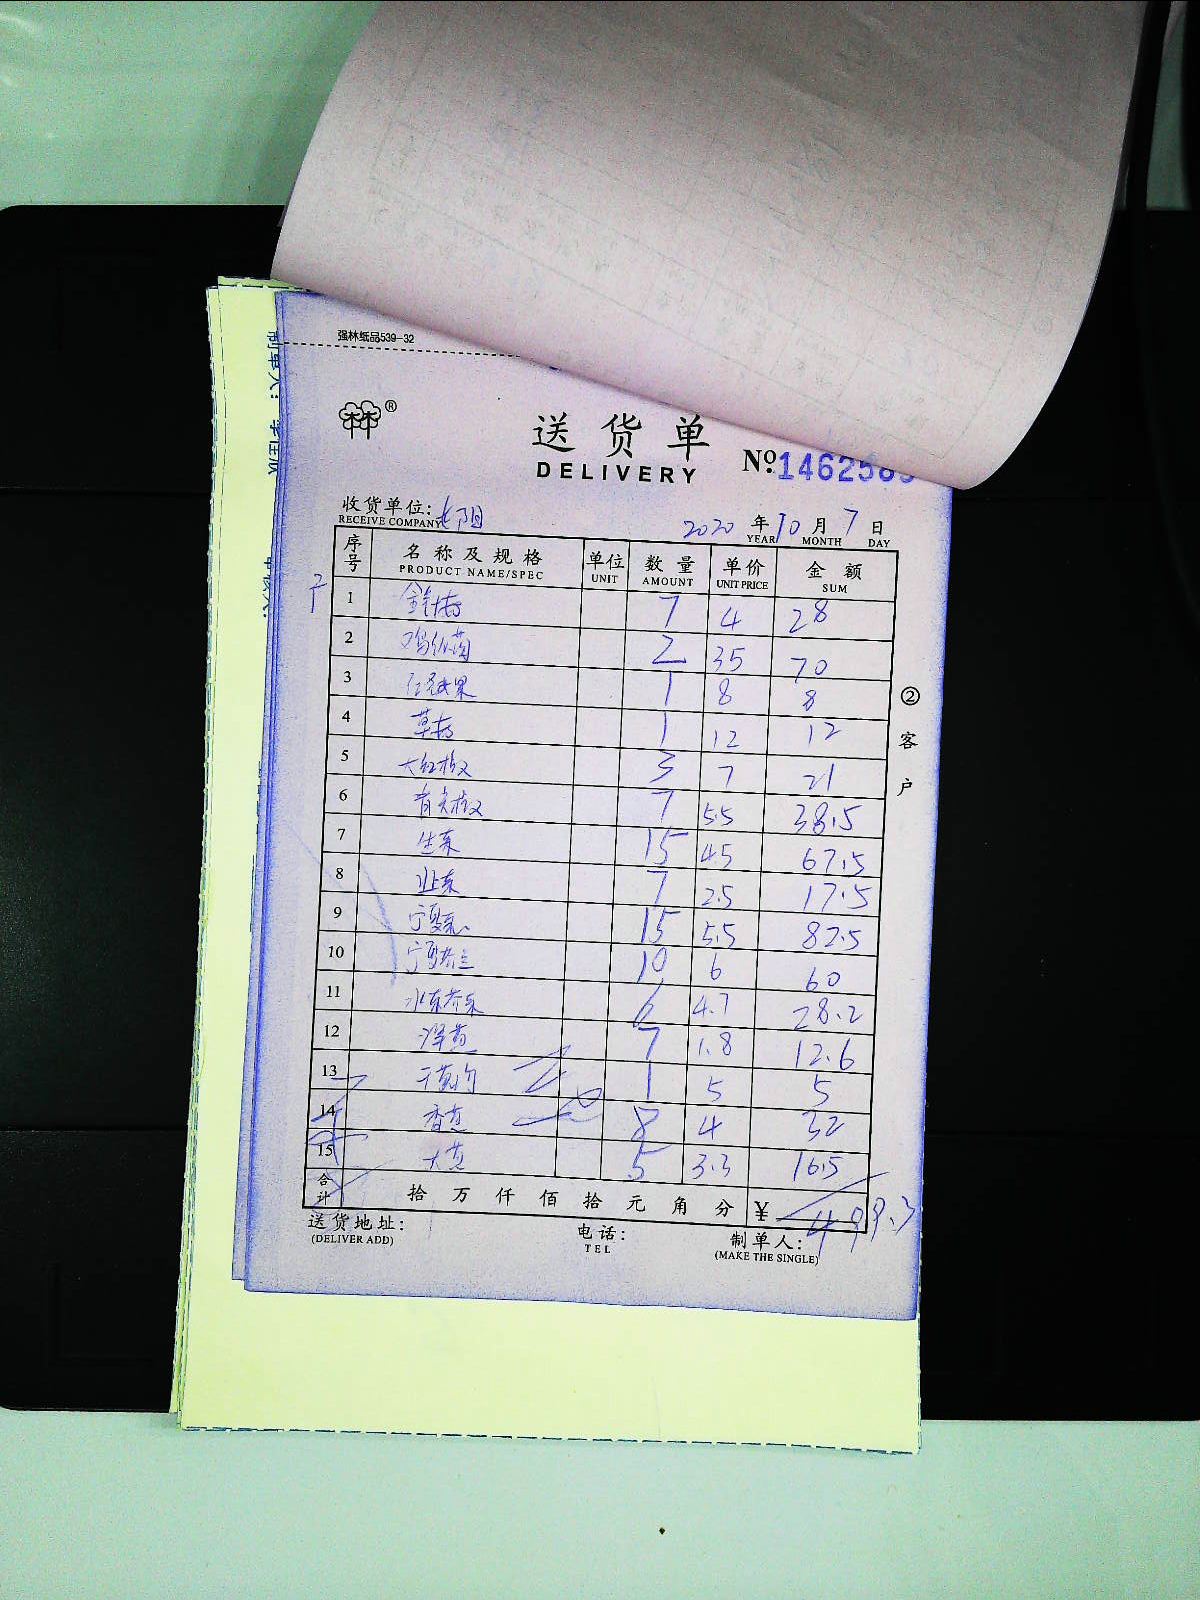 强林纸品539-32
®
送货单
DELIVERY
№ 146258
收货单位:
RECEIVE COMPANY
2020 年 10 月 7 日
YEAR MONTH DAY
序号 名称及规格 单位 数量 单价 金额
PRODUCT NAME/SPEC UNIT AMOUNT UNIT PRICE SUM
1 金针菇 7 4 28
2 鸡纵菌 2 35 70
3 1 8 8
4 草菇 1 12 12
5 大红椒 3 7 21
6 青尖椒 7 5.5 38.5
7 生菜 15 4.5 67.5
8 7 2.5 17.5
9 宁夏菜心 15 5.5 82.5
10 宁夏芥兰 10 6 60
11 水东芥菜 6 4.7 28.2
12 洋葱 7 1.8 12.6
13 干葱 1 5 5
14 香葱 8 4 32
15 大葱 5 3.3 16.5
合计 拾 万 仟 佰 拾 元 角 分 ¥ 499.3
送货地址: 电话: 制单人:
(DELIVER ADD) TEL (MAKE THE SINGLE)
② 客户
制单人: